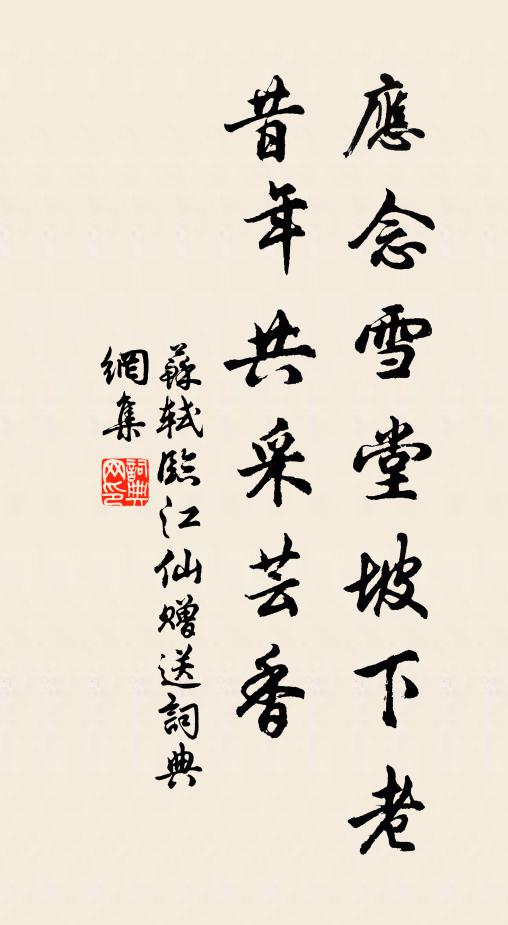 應念雪堂坡下老
昔年共采芸香
蘇軾臨江仙贈送詞典
網集
詞典
网印